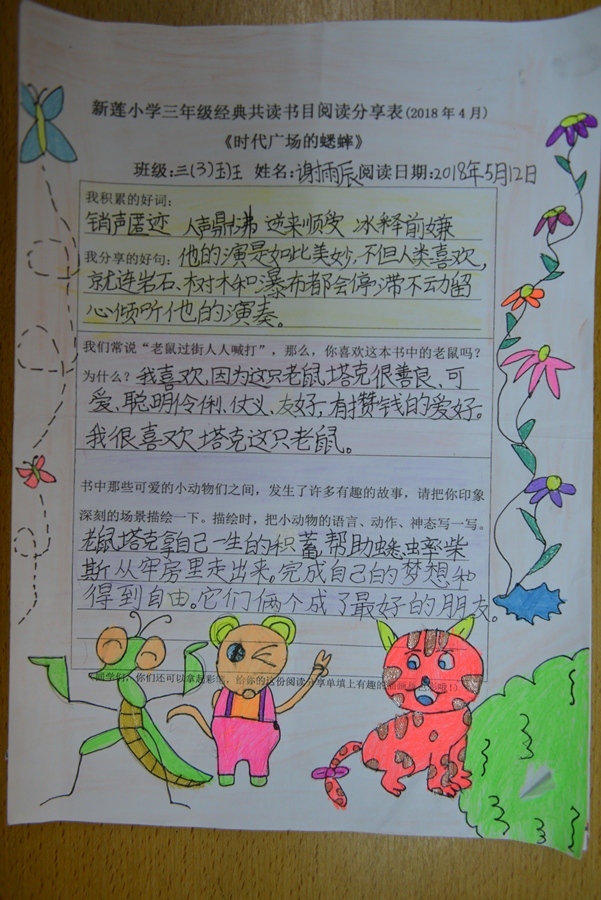 新莲小学三年级经典共读书目阅读分享表(2018年4月)
《时代广场的蟋蟀》
班级:三(3)班 姓名:谢雨辰 阅读日期:2018年5月12日
我积累的好词:
销声匿迹 人声鼎沸 逆来顺受 冰释前嫌
我分享的好句: 他的演是如此美妙,不但人类喜欢,
就连岩石、树木和瀑布都会停滞不动留
心倾听他的演奏。
我们常说“老鼠过街人人喊打”,那么,你喜欢这本书中的老鼠吗?
为什么? 我喜欢,因为这只老鼠塔克很善良、可
爱、聪明伶俐、仗义、友好,有攒钱的爱好。
我很喜欢塔克这只老鼠。
书中那些可爱的小动物们之间,发生了许多有趣的故事,请把你印象
深刻的场景描绘一下。描绘时,把小动物的语言、动作、神态写一写。
老鼠塔克拿自己一生的积蓄,帮助蟋蟀柴
斯从牢房里走出来。完成自己的梦想和
得到自由。它们俩个成了最好的朋友。
同学们,你们还可以拿起彩笔,给你的这份阅读分享单填上有趣的